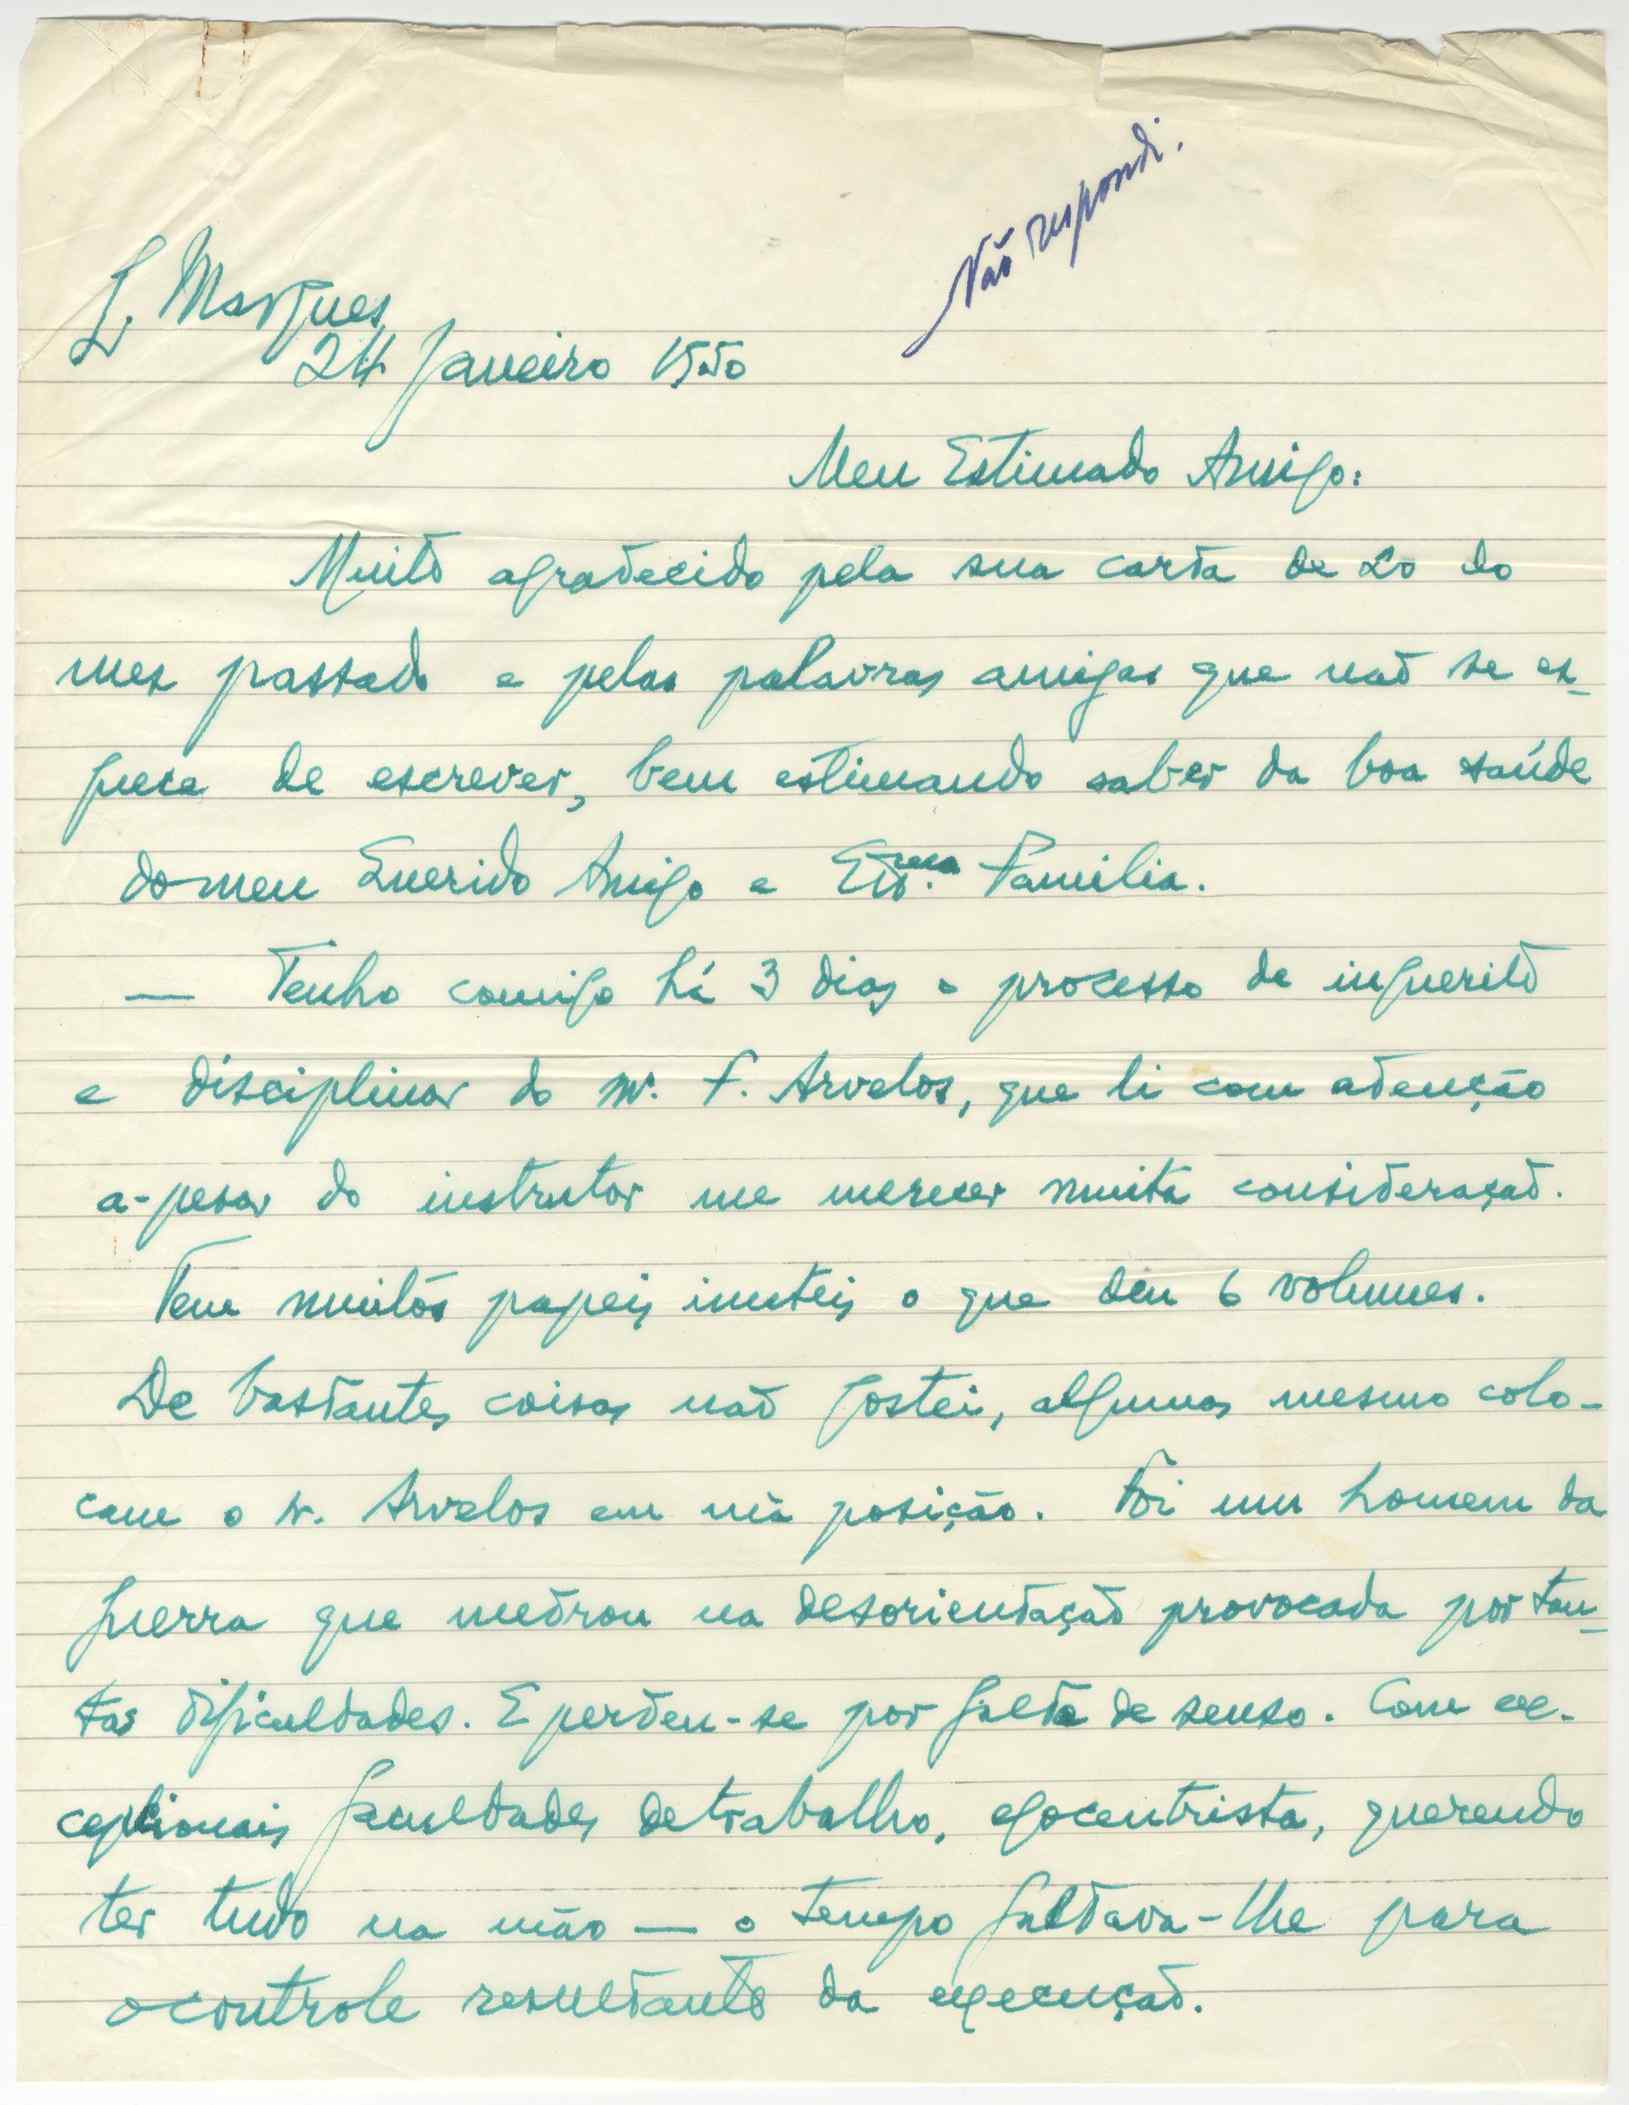 Não respondi.
L. Marques
24 Janeiro 1950
Meu Estimado Amigo:
Muito agradecido pela sua carta de 20 do
mes passado e pelas palavras amigas que não se es-
quece de escrever, bem estimando saber da boa saúde
do meu Querido Amigo e Família.
— Tenho comigo há 3 dias o processo de inquerito
e disciplinar do sr. F. Arvelos, que li com atenção
a-pesar do instrutor me merecer muita consideração.
Tem muitos papeis inuteis o que deu 6 volumes.
De bastantes coisas não gostei, algumas mesmo colo-
cam o sr. Arvelos em má posição. Foi um homem da
guerra que medrou na desorientação provocada por tan-
tas dificuldades. E perdeu-se por falta de senso. Com ex-
cepcionais faculdades de trabalho, egocentrista, querendo
ter tudo na mão — o tempo faltava-lhe para
o controle resultante da execução.